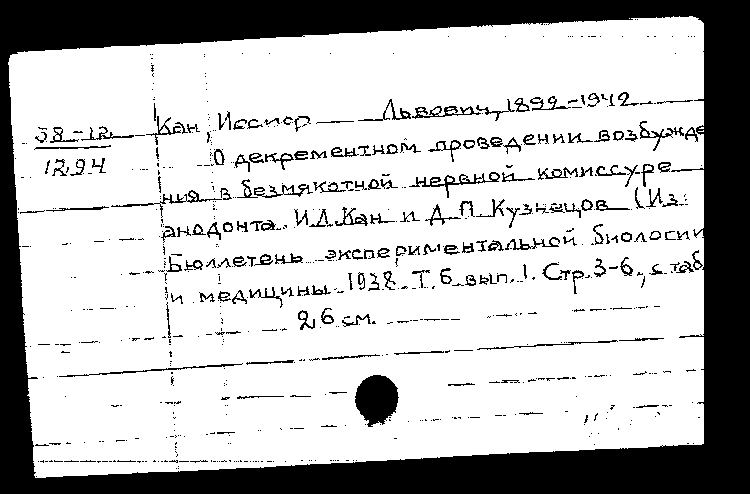 38-12 Кан, Иссиор Львович, 1899-1942
1294 О декрементном проведении возбужде
ния в безмякотной нервной комиссуре
анодонта. И.Л.Кан и Д.П.Кузнецов (Из:
Бюллетень экспериментальной биологии
и медицины. 1938. Т.6 вып.1. Стр.3-6, с таб
26 см.